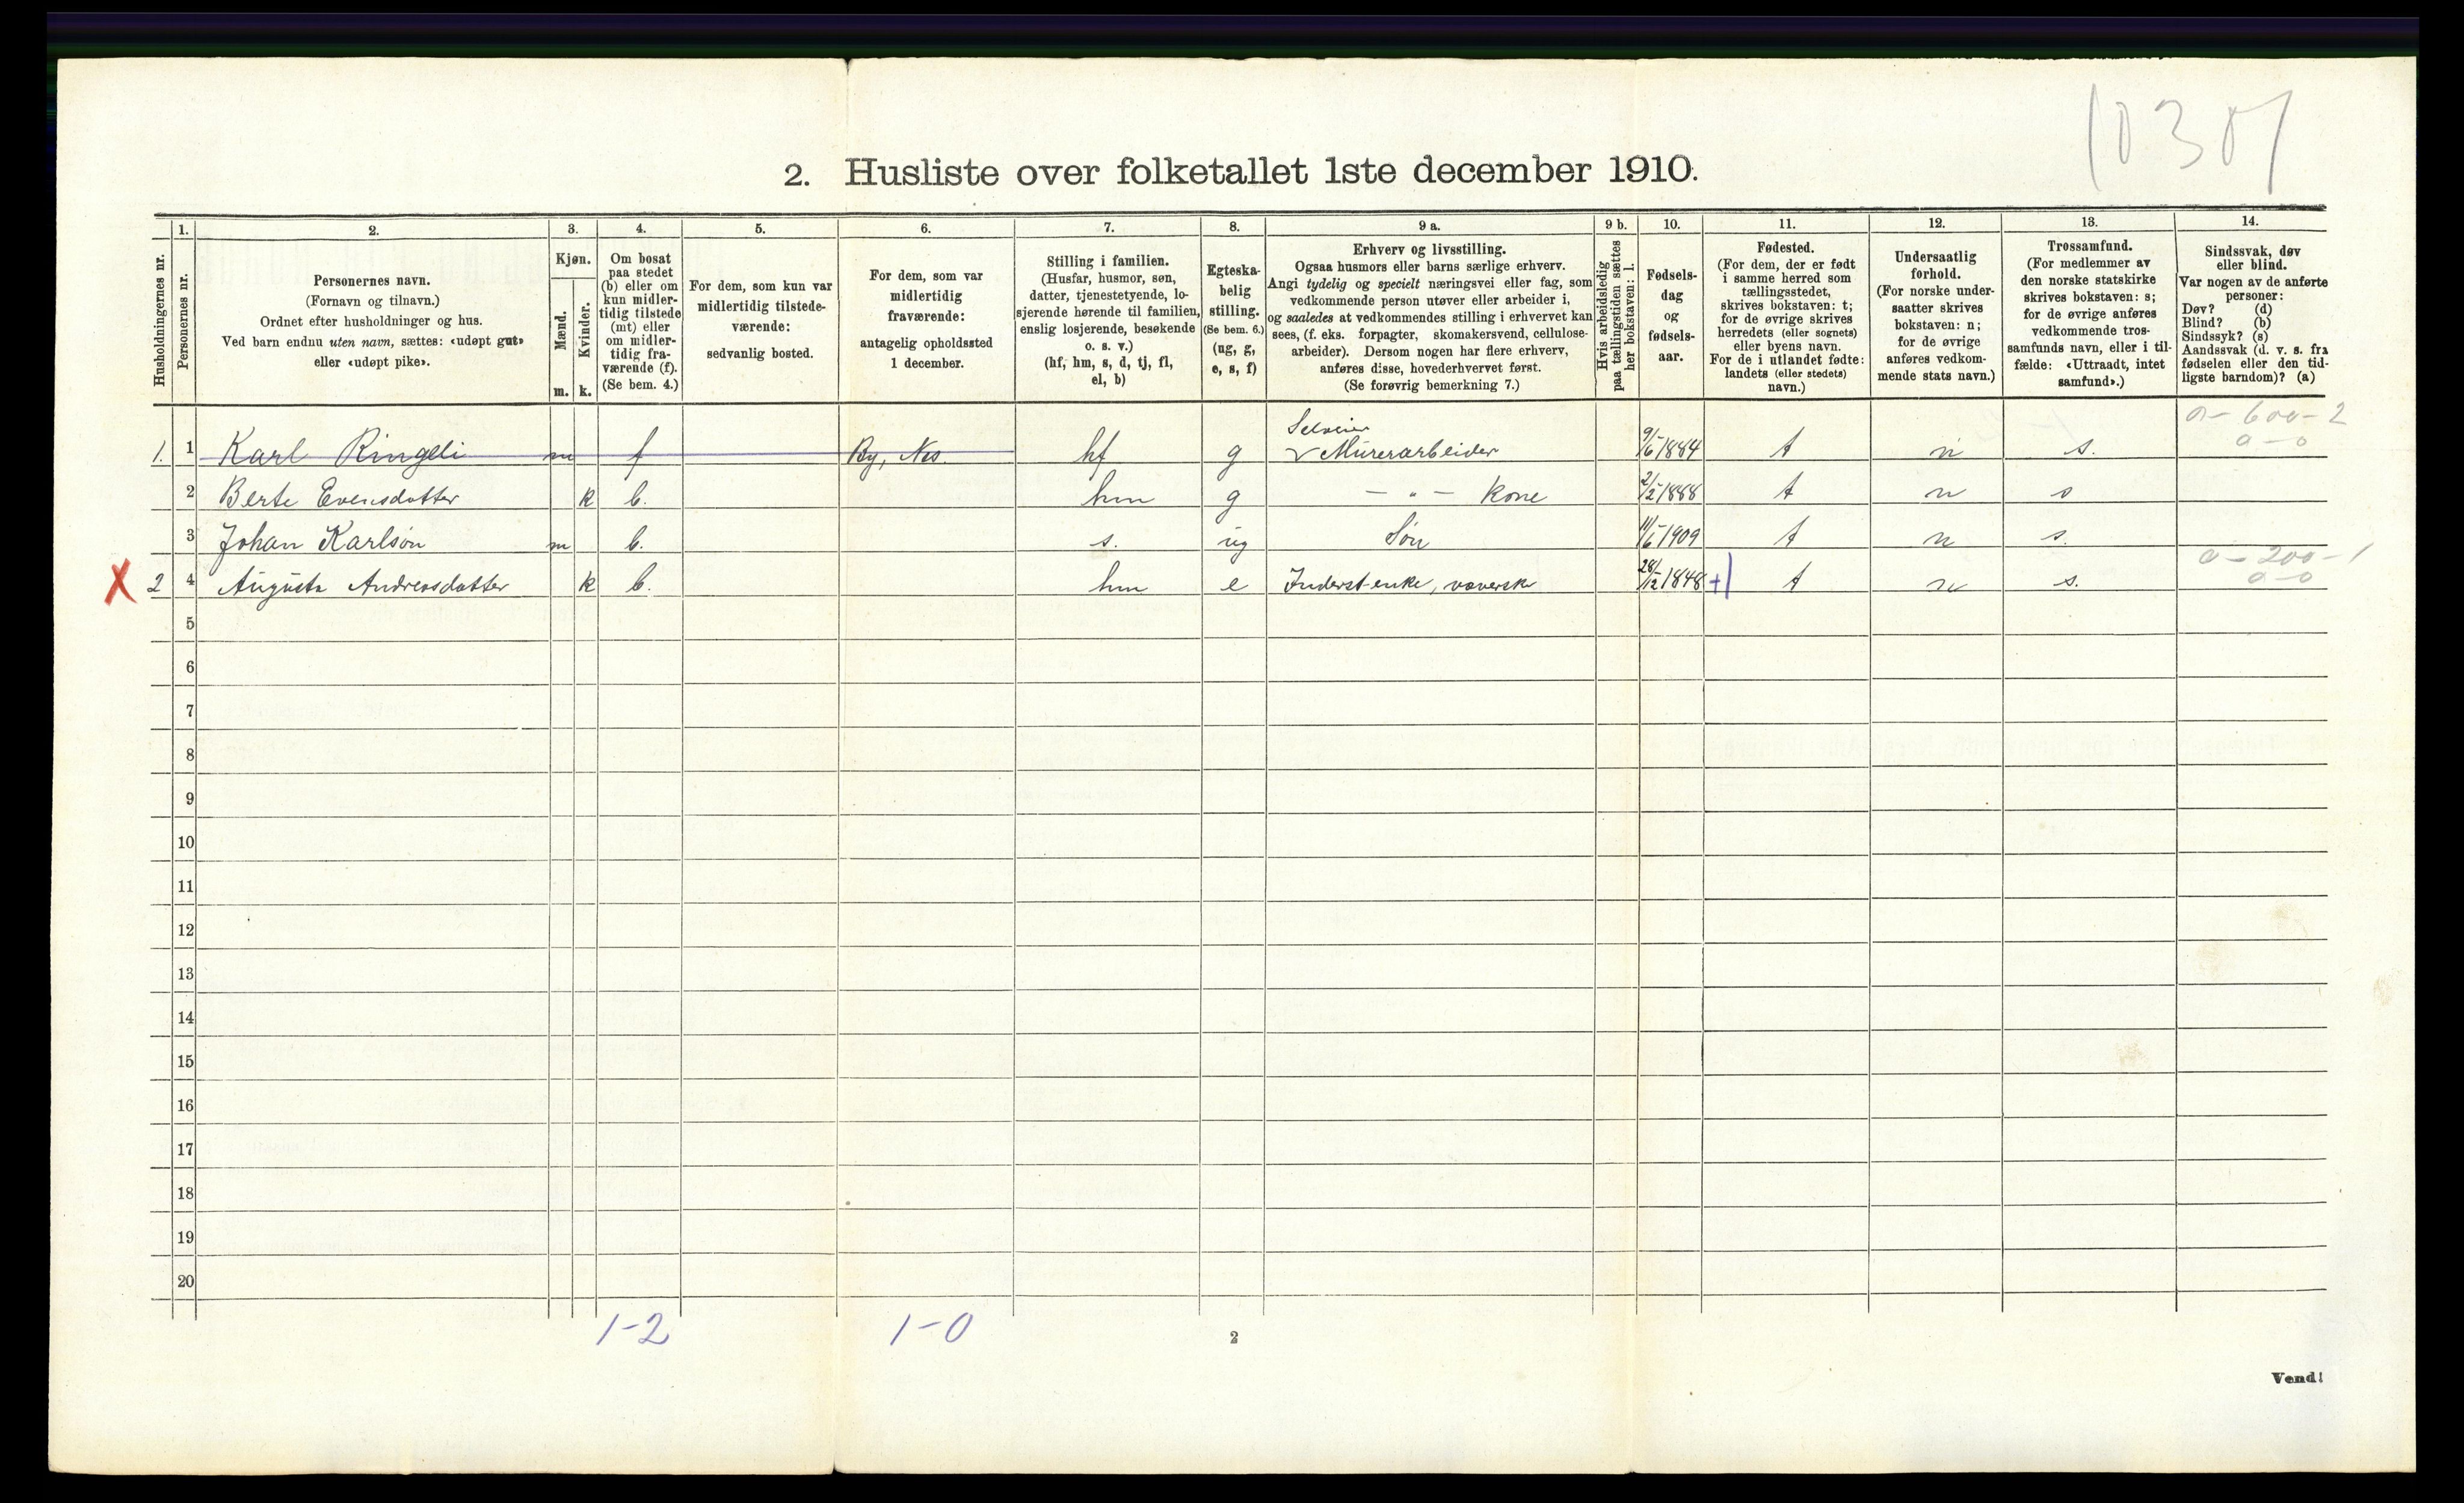 2. Husliste over folketallet 1ste december 1910.
1. 2. 3. 4. 5. 6. 7. 8. 9 a. 9 b. 10. 11. 12. 13. 14.
Husholdningernes nr.
Personernes nr.
Personernes navn.
(Fornavn og tilnavn.)
Ordnet efter husholdninger og hus.
Ved barn endnu uten navn, sættes: «udøpt gut»
eller «udøpt pike».
Kjøn.
Mænd.
m.
Kvinder.
k.
Om bosat
paa stedet
(b) eller om
kun midler-
tidig tilstede
(mt) eller
om midler-
tidig fra-
værende (f).
(Se bem. 4.)
For dem, som kun var
midlertidig tilstede-
værende:
sedvanlig bosted.
For dem, som var
midlertidig
fraværende:
antagelig opholdssted
1 december.
Stilling i familien.
(Husfar, husmor, søn,
datter, tjenestetyende, lo-
sjerende hørende til familien,
enslig losjerende, besøkende
o. s. v.)
(hf, hm, s, d, tj, fl,
el, b)
Egteska-
belig
stilling.
(Se bem. 6.)
(ug, g,
e, s, f)
Erhverv og livsstilling.
Ogsaa husmors eller barns særlige erhverv.
Angi tydelig og specielt næringsvei eller fag, som
vedkommende person utøver eller arbeider i,
og saaledes at vedkommendes stilling i erhvervet kan
sees, (f. eks. forpagter, skomakersvend, cellulose-
arbeider). Dersom nogen har flere erhverv,
anføres disse, hovederhvervet først.
(Se forøvrig bemerkning 7.)
Hvis arbeidsledig
paa tællingstiden sættes
her bokstaven: l.
Fødsels-
dag
og
fødsels-
aar.
Fødested.
(For dem, der er født
i samme herred som
tællingsstedet,
skrives bokstaven: t;
for de øvrige skrives
herredets (eller sognets)
eller byens navn.
For de i utlandet fødte:
landets (eller stedets)
navn.)
Undersaatlig
forhold.
(For norske under-
saatter skrives
bokstaven: n;
for de øvrige
anføres vedkom-
mende stats navn.)
Trossamfund.
(For medlemmer av
den norske statskirke
skrives bokstaven: s;
for de øvrige anføres
vedkommende tros-
samfunds navn, eller i til-
fælde: «Uttraadt, intet
samfund».)
Sindssvak, døv
eller blind.
Var nogen av de anførte
personer:
Døv? (d)
Blind? (b)
Sindssyk? (s)
Aandssvak (d. v. s. fra
fødselen eller den tid-
ligste barndom)? (a)
0 - 600 - 2
0 - 0
Selveier
1. 1 Karl Ringeli m f By, Nes. hf g Murerarbeider 9/6 1884 t n s.
2 Berte Evensdatter k b. hm g - " - Kone 2/2 1888 t n s
3 Johan Karlson m b. s. ug Søn 11/6 1909 t n s.
0 - 200 - 1
0 - 0
X 2 4 Augusta Andreasdatter k b. hm e Inderst-enke, væverske 28/12 1848 + t n s.
5
6
7
8
9
10
11
12
13
14
15
16
17
18
19
20
1-2 1-0 2
Vend!